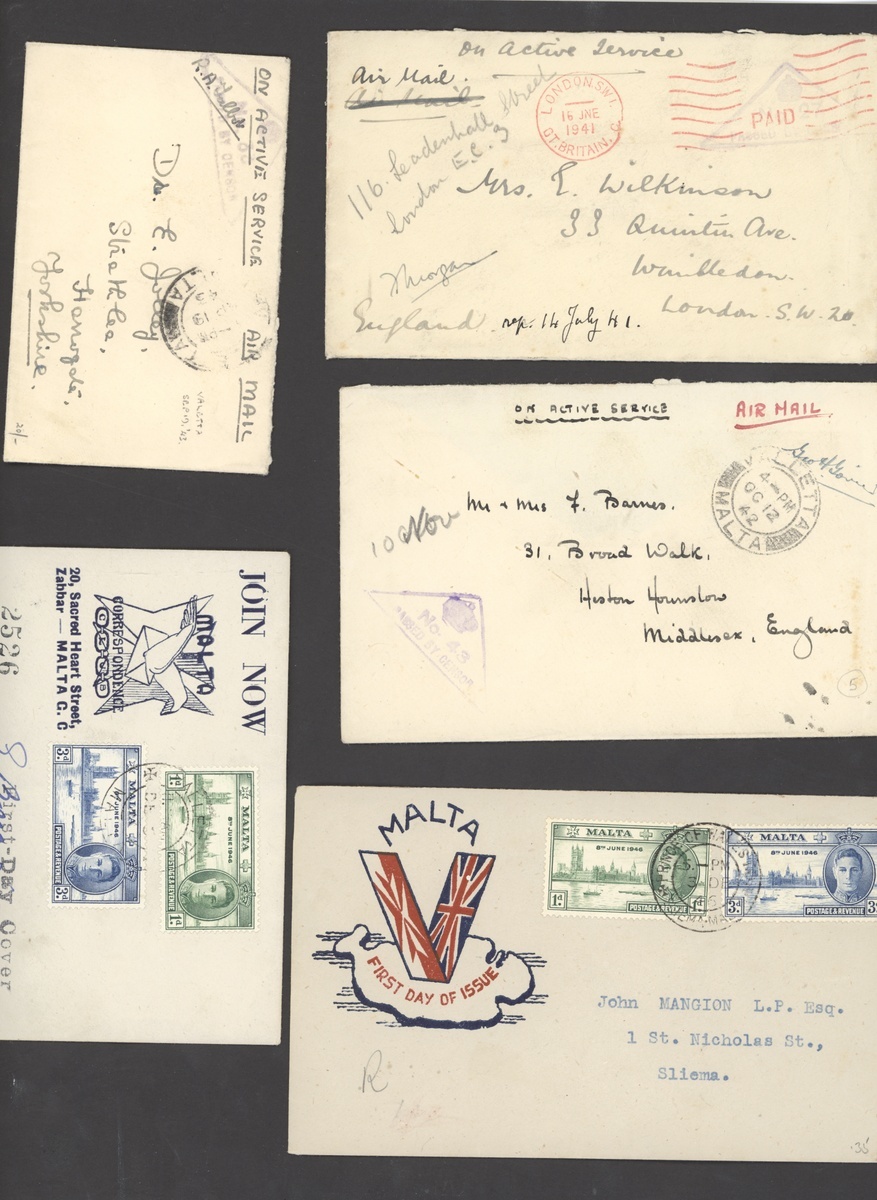 ON ACTIVE SERVICE AIR MAIL
BY CENSOR
Dr. E. Jolley,
Strathlea,
Harrogate,
Yorkshire.
VALLETTA
SEP 10. '43.
20/-
On Active Service
Air Mail.
Air Mail
LONDON.S.W.1.
16 JNE
1941
GT. BRITAIN.
PAID
116. Leadenhall Street
London E.C.3
Mrs. E. Wilkinson
33 Quintin Ave.
Wimbledon.
London. S.W. 20
England
rep. 14 July 41.
ON ACTIVE SERVICE
AIR MAIL.
VALLETTA
4 - PM
OC 12
42
MALTA
10 Nov
Mr & Mrs F. Barnes.
31, Broad Walk,
Heston Hounslow
Middlesex, England
No. 43
PASSED BY CENSOR
5
JOIN NOW
MALTA
CORRESPONDENCE
20, Sacred Heart Street,
Zabbar — MALTA G. C
MALTA
8TH JUNE 1946
POSTAGE & REVENUE
1d
1d
MALTA
8TH JUNE 1946
POSTAGE & REVENUE
3d
3d
First-Day Cover
2526
MALTA
V
FIRST DAY OF ISSUE
MALTA
8TH JUNE 1946
1d POSTAGE & REVENUE 1d
MALTA
8TH JUNE 1946
3d POSTAGE & REVENUE 3
John MANGION L.P. Esq.
1 St. Nicholas St.,
Sliema.
R
35